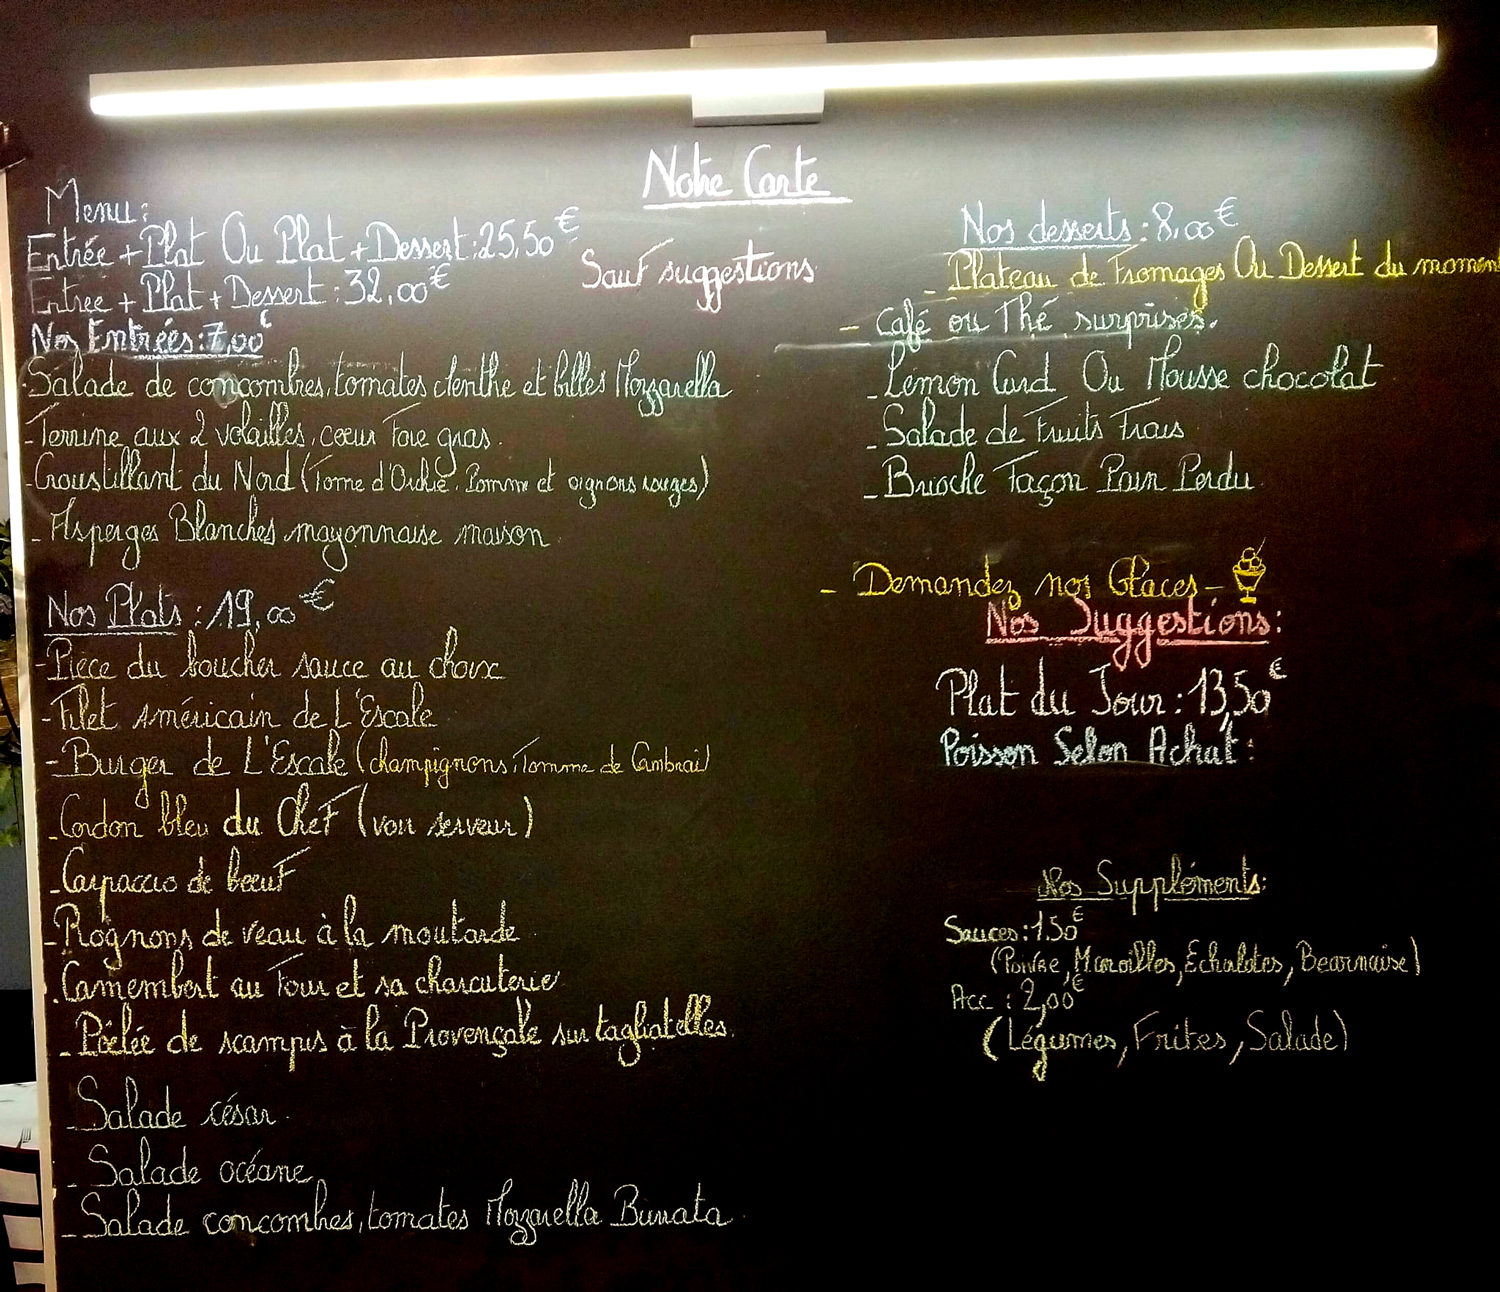 Notre Carte
Menu:
Entrée + Plat Ou Plat + Dessert : 25,50€
Entrée + Plat + Dessert : 32,00€
Sauf suggestions
Nos Entrées : 7,00€
- Salade de concombres, tomates menthe et billes Mozzarella
- Terrine aux 2 volailles, coeur Foie gras.
- Croustillant du Nord (Tome d'Orchie, Pomme et oignons rouges)
- Asperges Blanches mayonnaise maison
Nos Plats : 19,00€
- Pièce du boucher sauce au choix
- Filet Américain de L'Escale
- Burger de L'Escale (champignons, Tomme de Cambrai)
- Cordon bleu du Chef (voir serveur)
- Carpaccio de boeuf
- Rognons de veau à la moutarde
- Camembert au Four et sa charcuterie
- Poêlée de scampis à la Provençale sur tagliatelles.
- Salade césar.
- Salade océane
- Salade concombres, tomates Mozzarella Burrata
Nos desserts : 8,00€
- Plateau de Fromages Ou Dessert du moment
- Café ou Thé surprises.
- Lemon Curd Ou Mousse chocolat
- Salade de Fruits Frais
- Brioche Façon Pain Perdu
- Demandez nos Glaces -
Nos Suggestions:
Plat du Jour : 13,50€
Poisson Selon Achat :
Nos Suppléments:
Sauces : 1.50€
(Poivre, Maroilles, Echalotes, Bearnaise)
Acc : 2,00€
(Légumes, Frites, Salade)